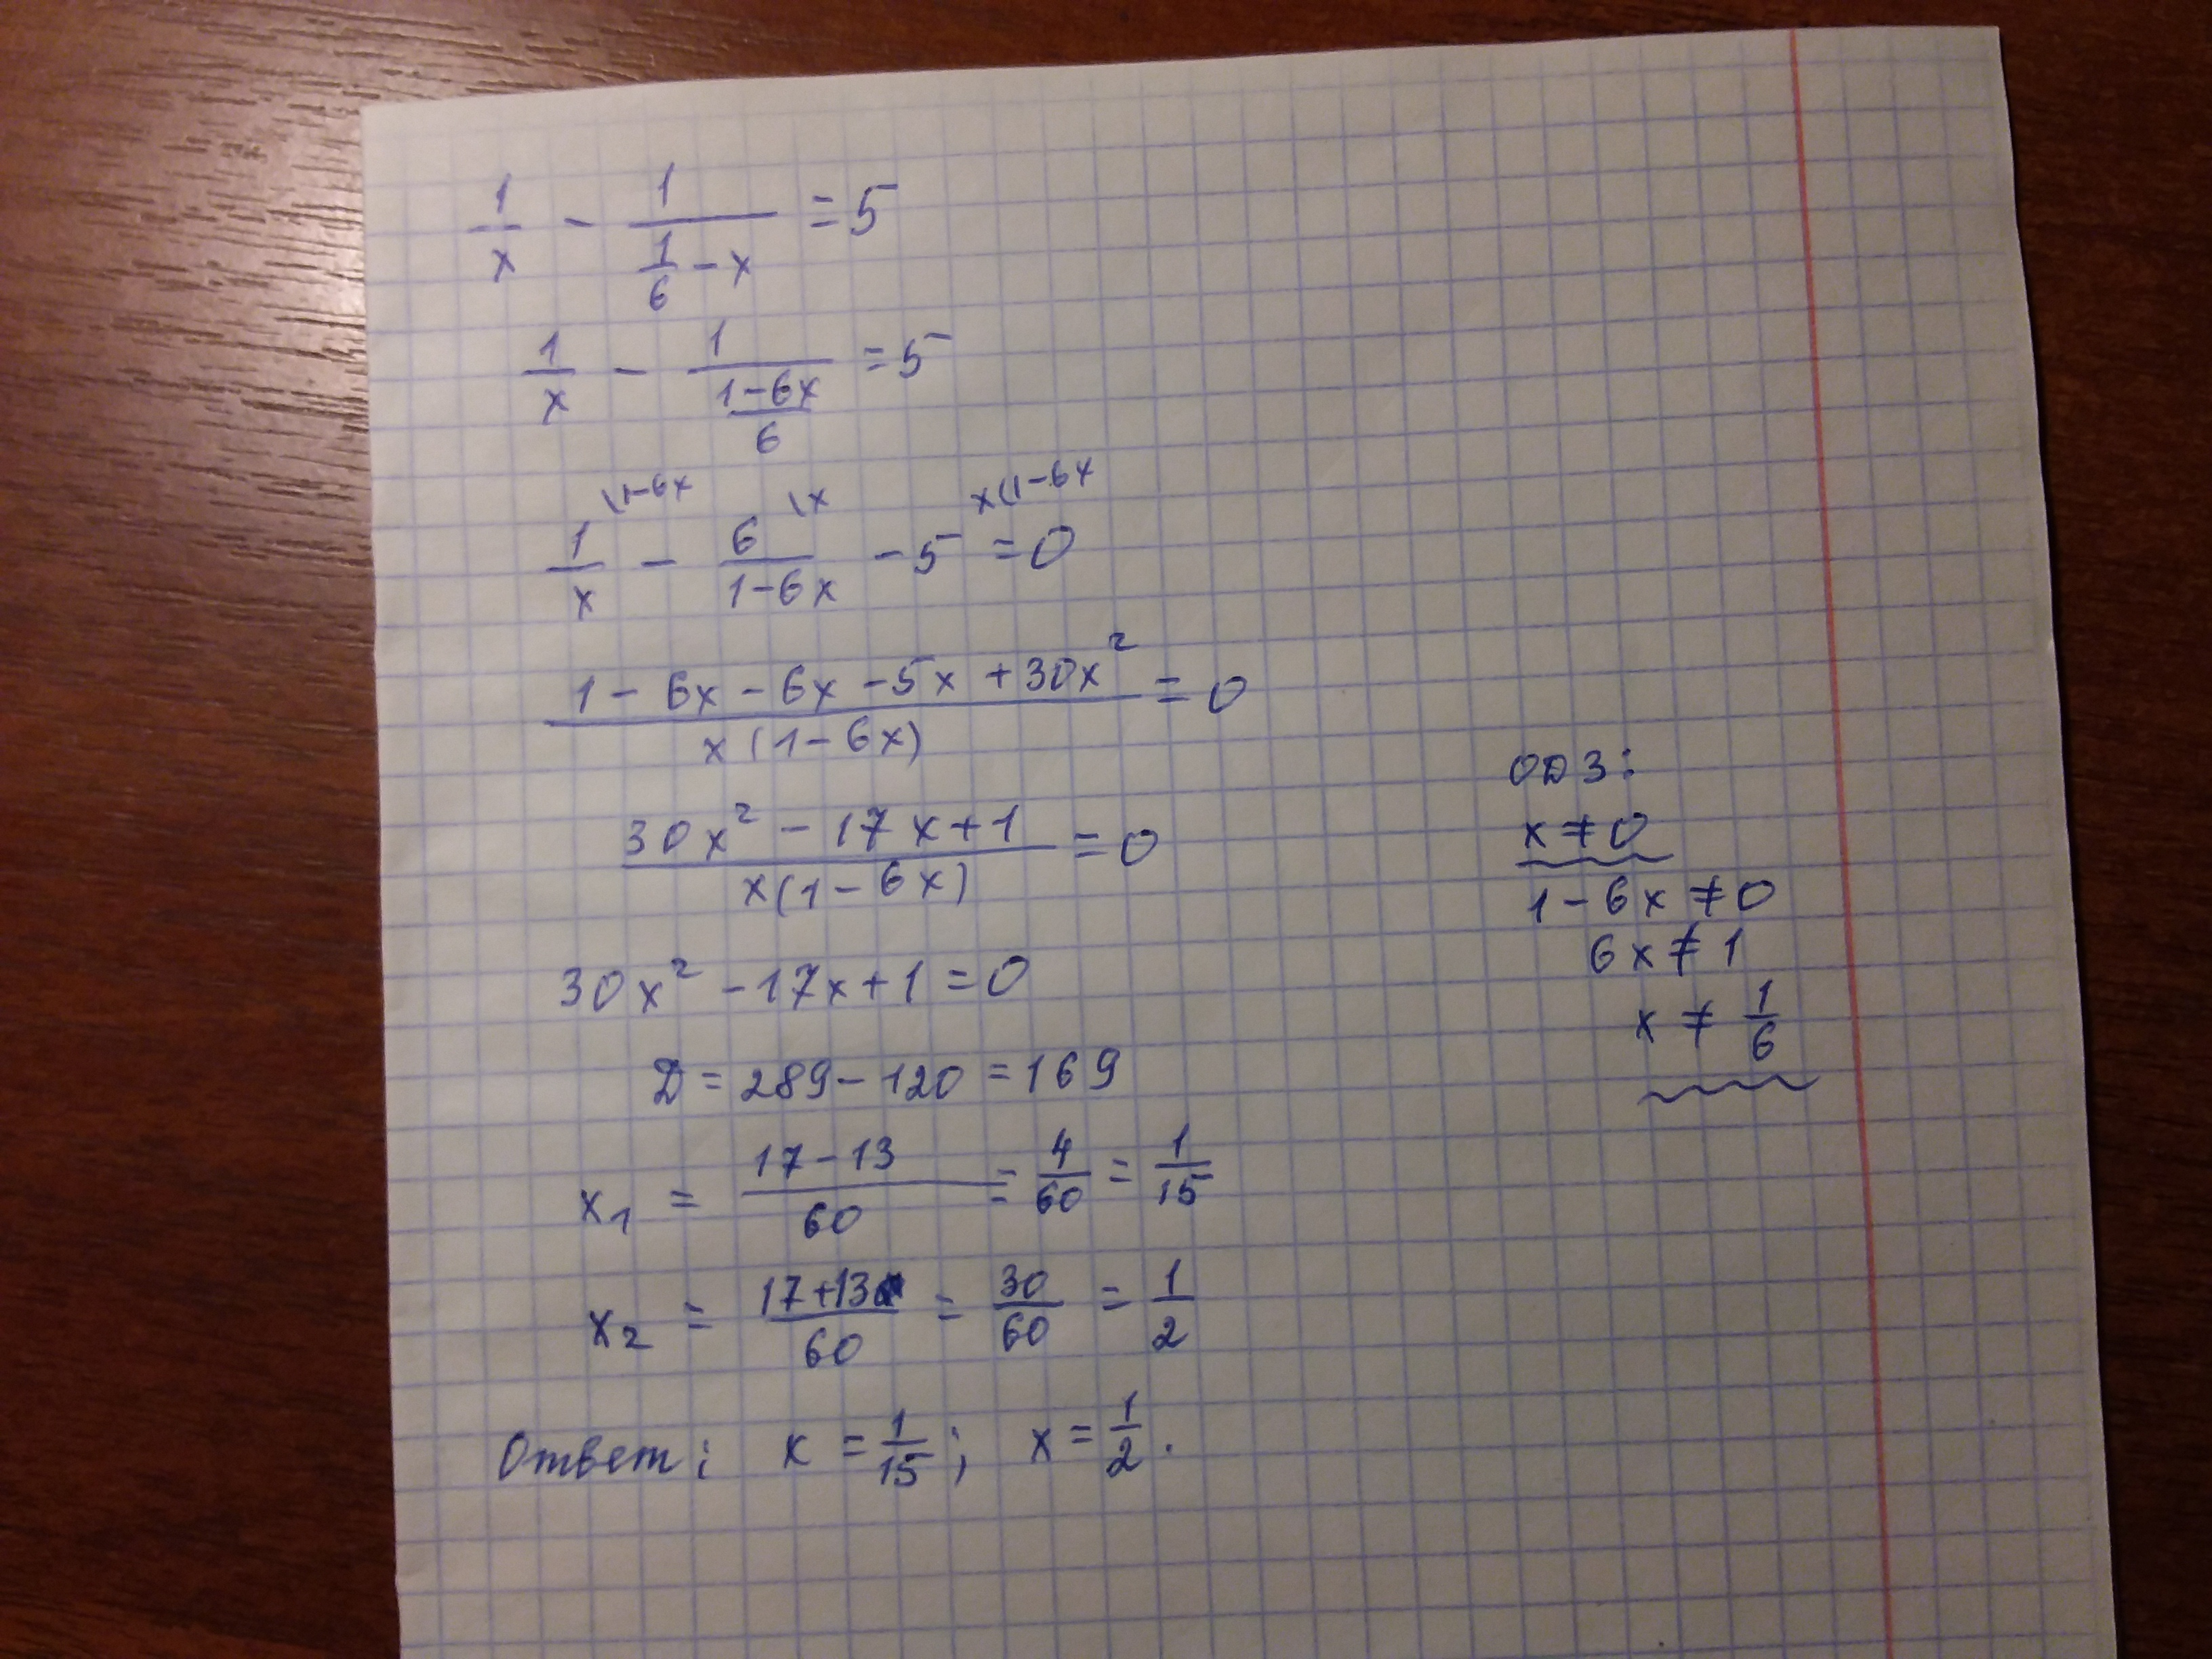 1/x - 1/(1/6 - x) = 5
1/x - 1/((1-6x)/6) = 5
1/x \1-6x - 6/(1-6x) \x - 5 x(1-6x = 0
(1 - 6x - 6x - 5x + 30x²)/(x(1-6x)) = 0
(30x² - 17x + 1)/(x(1-6x)) = 0
30x² - 17x + 1 = 0
D = 289 - 120 = 169
x₁ = (17-13)/60 = 4/60 = 1/15
x₂ = (17+13)/60 = 30/60 = 1/2
Ответ: x = 1/15; x = 1/2.
ОДЗ:
x ≠ 0
1 - 6x ≠ 0
6x ≠ 1
x ≠ 1/6